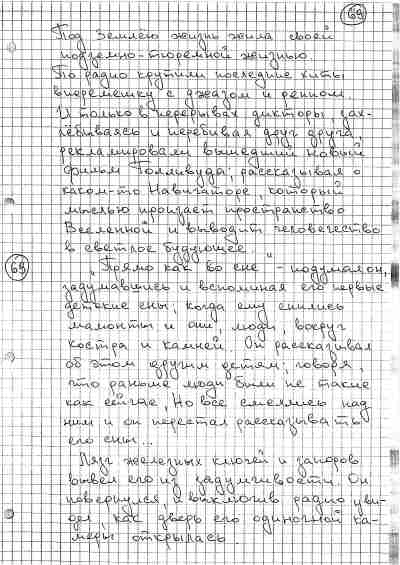 69
Под Землею жизнь жила своей
подземно-тюремной жизнью.
По радио крутили последние хиты,
вперемешку с джазом и репом.
И только в перерывах дикторы, зах-
лёбываясь и перебивая друг друга,
рекламировали вышедший новый
фильм Голливуда; рассказывая о
каком-то Навигаторе, который
мыслью пронзает пространство
Вселенной и выводит человечество
в светлое будующее.
69
„Прямо как во сне" - подумал он,
задумавшись и вспоминая его первые
детские сны; когда ему снились
мамонты и они, люди, вокруг
костра и камней. Он рассказывал
об этом другим детям; говоря,
что раньше люди были не такие
как сейчас, Но все смеялись над
ним и он перестал рассказывать
его сны...
Лязг железных ключей и запоров
вывел его из задумчивости. Он
повернулся, выключив радио уви-
дел, как дверь его одиночной ка-
меры открылась.